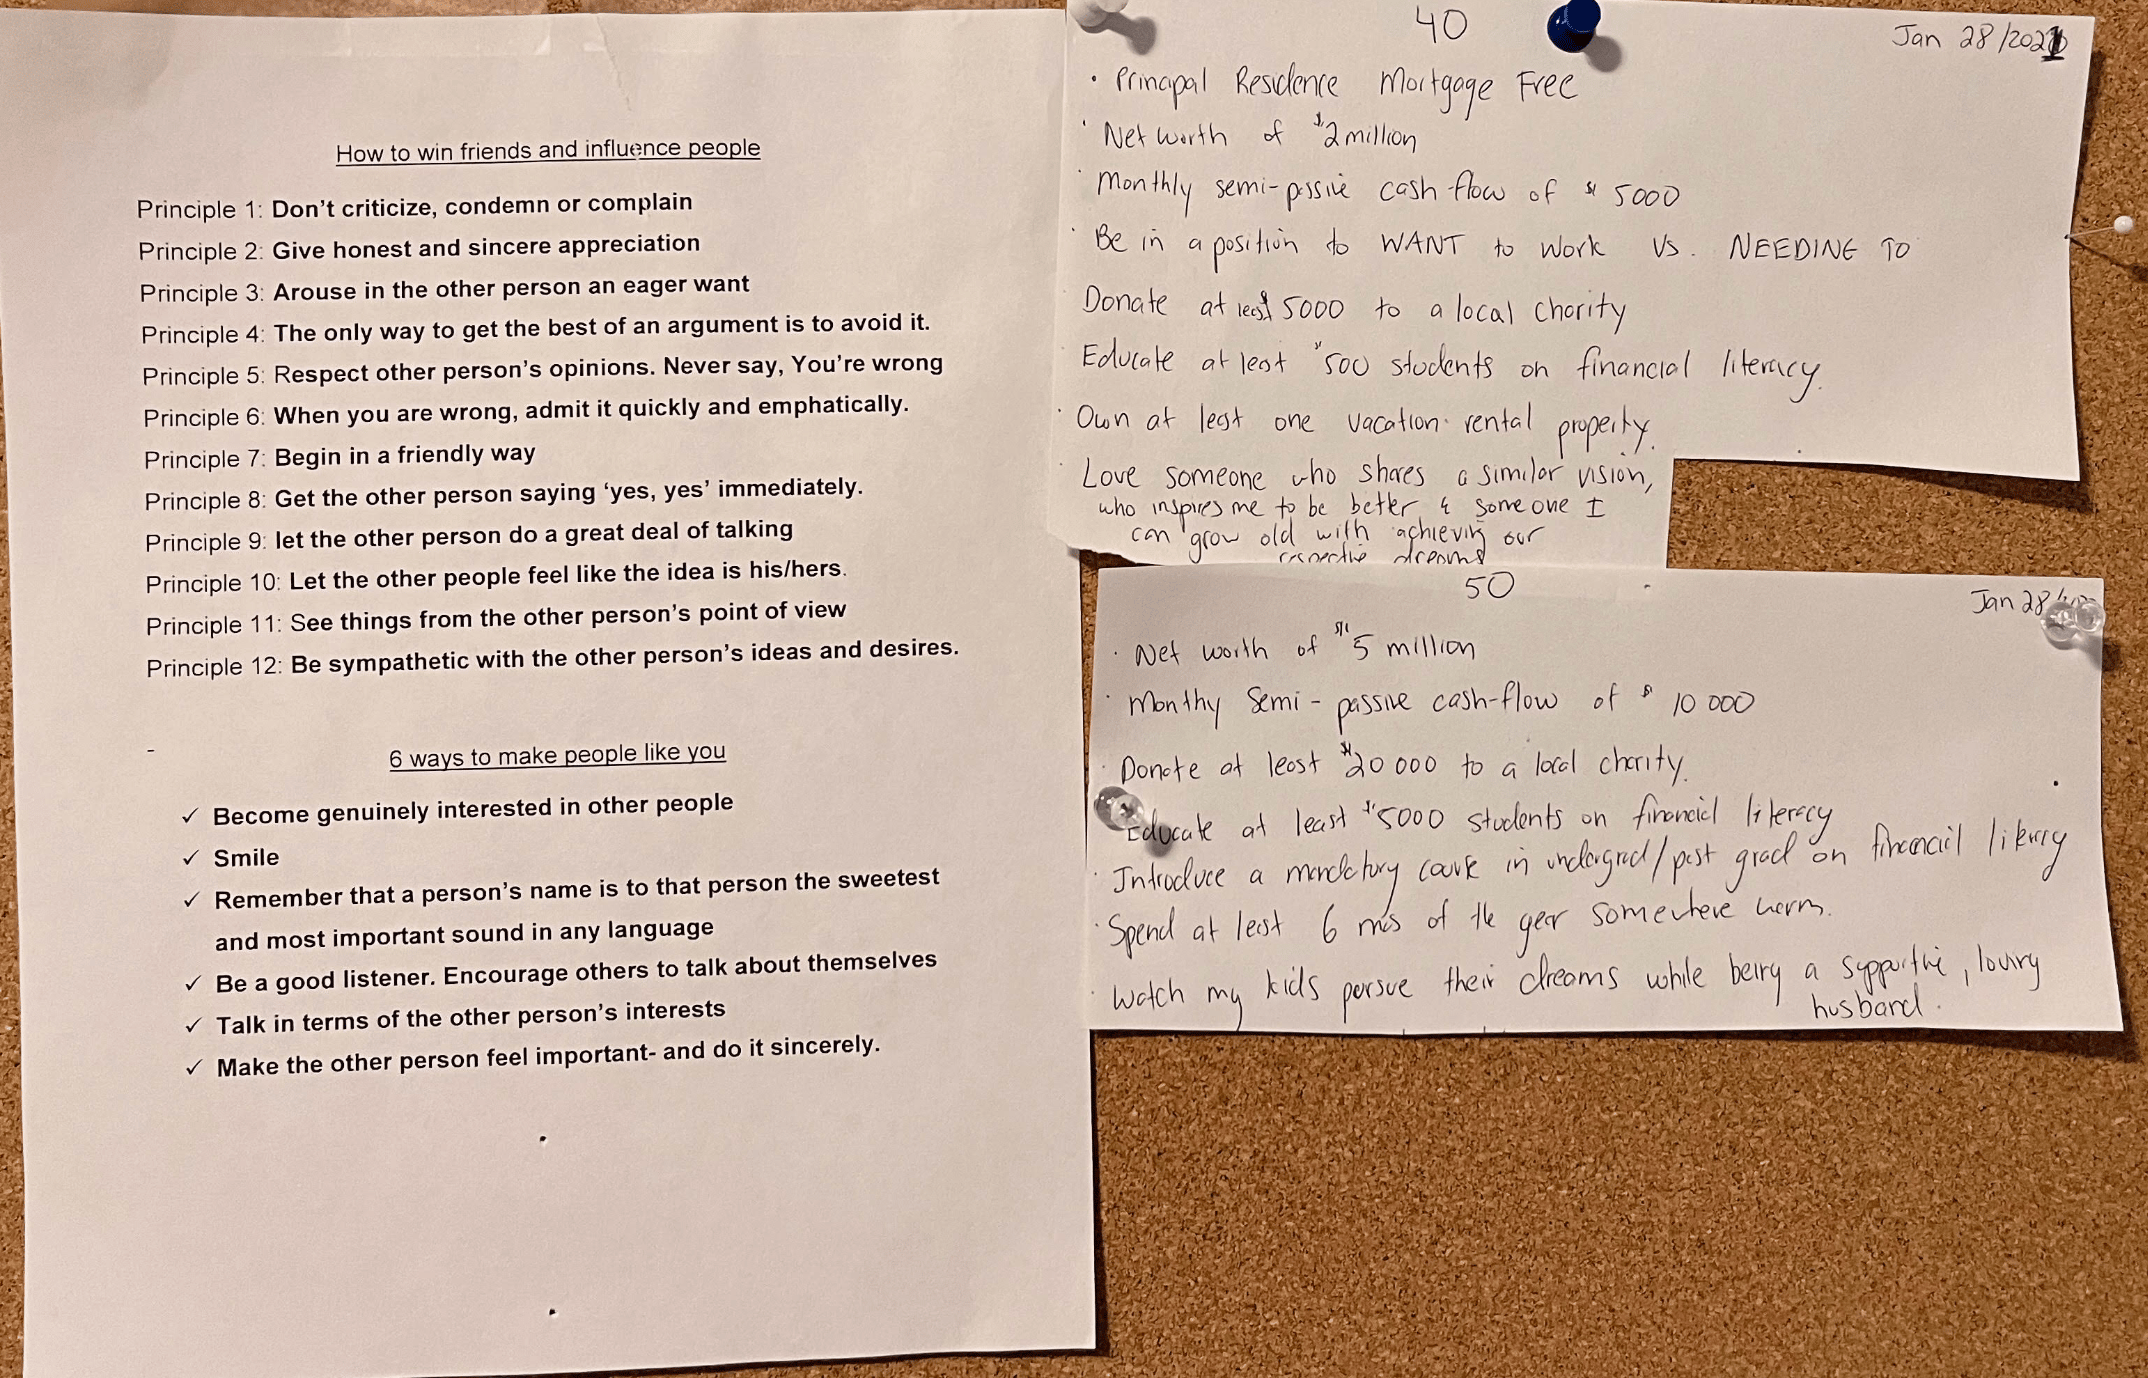 How to win friends and influence people
Principle 1: Don't criticize, condemn or complain
Principle 2: Give honest and sincere appreciation
Principle 3: Arouse in the other person an eager want
Principle 4: The only way to get the best of an argument is to avoid it.
Principle 5: Respect other person's opinions. Never say, You're wrong
Principle 6: When you are wrong, admit it quickly and emphatically.
Principle 7: Begin in a friendly way
Principle 8: Get the other person saying ‘yes, yes’ immediately.
Principle 9: let the other person do a great deal of talking
Principle 10: Let the other people feel like the idea is his/hers.
Principle 11: See things from the other person's point of view
Principle 12: Be sympathetic with the other person's ideas and desires.
-
6 ways to make people like you
✓ Become genuinely interested in other people
✓ Smile
✓ Remember that a person's name is to that person the sweetest
and most important sound in any language
✓ Be a good listener. Encourage others to talk about themselves
✓ Talk in terms of the other person's interests
✓ Make the other person feel important- and do it sincerely.
40
Jan 28/2021
· Principal Residence Mortgage Free
· Net worth of $2 million
· Monthly semi-passive cash-flow of $ 5000
· Be in a position to WANT to work vs. NEEDING TO
Donate at least $5000 to a local charity
Educate at least 500 students on financial literacy.
· Own at least one vacation rental property.
· Love someone who shares a similar vision,
who inspires me to be better & someone I
can grow old with achieving our
respective dreams
50
Jan 28/
· Net worth of $5 million
· Monthy Semi-passive cash-flow of $ 10 000
· Donate at least $20 000 to a local charity.
Educate at least 5000 students on financial literacy
· Introduce a mandatory course in undergrad/post grad on financial literacy
· Spend at least 6 mos of the year somewhere warm.
· Watch my kids persue their dreams while being a supportive, loving
husband.